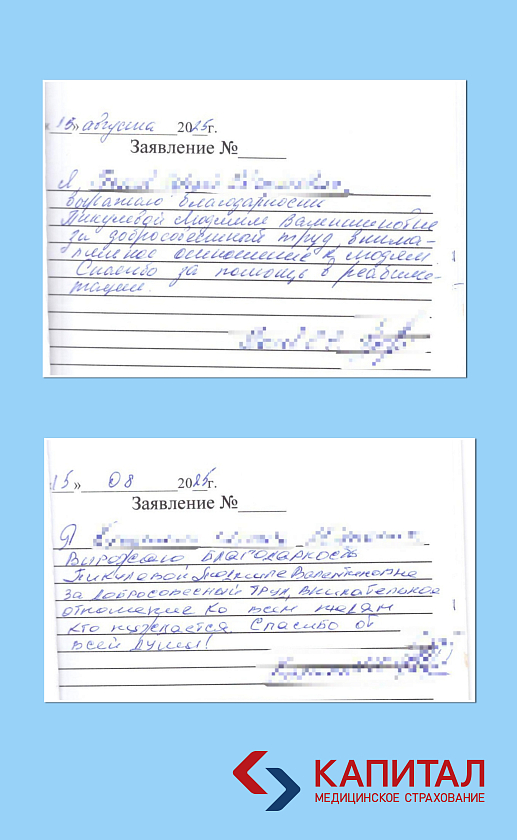 « 13 » августа 2025г.
Заявление №
Я,
выражаю благодарности
Пикуловой Людмиле Валентиновне
за добросовестный труд, внима-
тельное отношение к людям.
Спасибо за помощь в реабили-
тации.
15 » 08 2025г.
Заявление №
Я
Выражаю благодарность
Пикуловой Людмиле Валентиновне
за добросовесный труд, внимательное
отношение ко всем людям
кто нуждается. Спасибо от
всей души!
КАПИТАЛ
МЕДИЦИНСКОЕ СТРАХОВАНИЕ